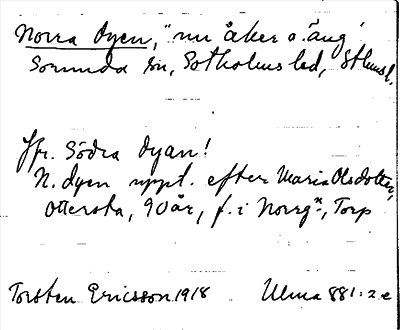 Norra Dyen, "nu åker o. äng"
Sorunda sn, Sotholms hd, Sthmsl.
Jfr. Södra Dyan!
N. Dyen uppt. efter Maria Olsdotter,
Ottersta, 90 år, f. i Norrgn, Torp
Torsten Ericsson 1918 Ulma 881:2.e